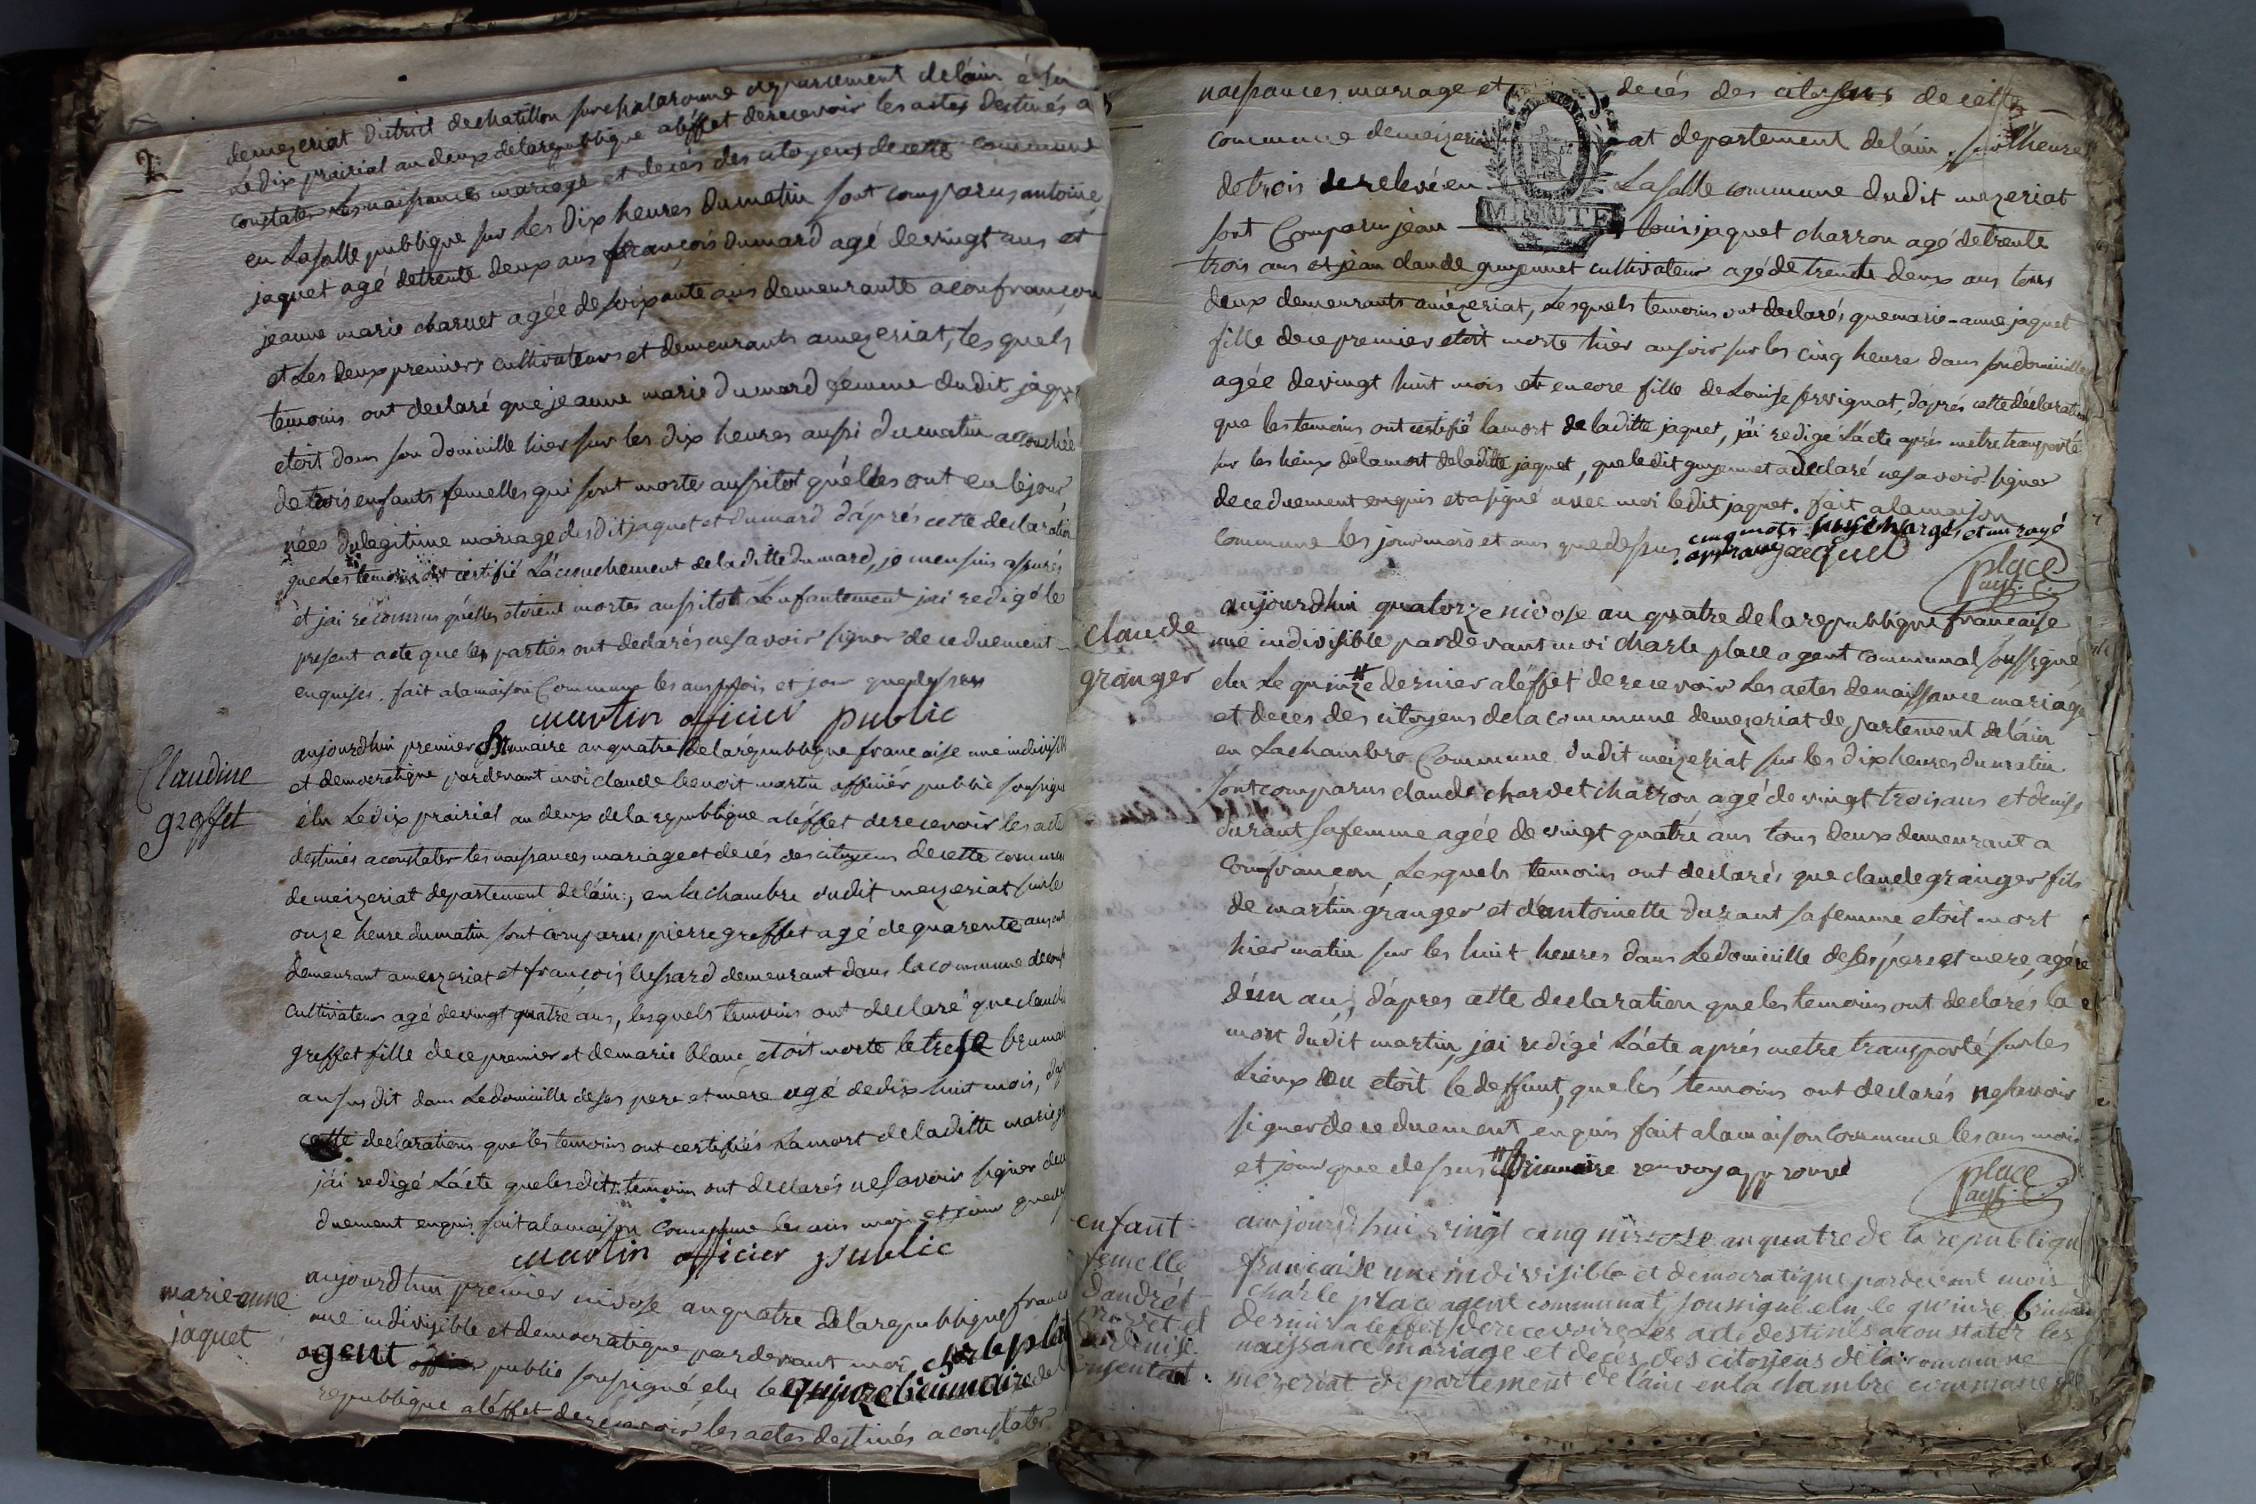 2
demezeriat district dechatillon surchalaronne departement delain élu
Ledix prairial andeux delarepublique aléffet derecevoir les actes destinés a
constater Les naissances mariage et decés des citoyens decette commune
en Lasalle publique sur Les dix heures dumatin sont comparus antoine
jaquet agé detrente deux ans françois dumard agé devingt ans et
jeanne marie charvet agée de soixante ans demeurante aconfrançon
et Les deux premiers cultivateurs et demeurants amezeriat, les quels
temoins ont declaré que jeanne marie dumard femme dudit jaqu
etoit dans son domicille hier sur les dix heures aussi dumatin accouchée
detrois enfants femelles qui sont morte aussitot quélles ont eu lejour
nées du legitime mariage desdit jaquet et dumard dáprés cette declaration
que les temoins ont certifié Láccouchement deladitte dumard, je mensuis assurés
et jai réconnus quélles etoient mortes aussitot Lenfantement jai redigé le
present acte que les parties ont declarés nesavoir signer de ceduement
enquises. fait alamaison Commune les ans mois et jour quedessus
martin officier public
Claudine
greffet
aujourdhui premier frimaire anquatre delarépublique francaise une indivisible
et democratique pardevant moi claude benoit martin officier public soussigné
élu Ledix prairial an deux de la republique aléffet derecevoir les acte
destinés aconstater les naissances mariage et decés des citoyens decette commun
demeizeriat departement deláin, en la chambre dudit meizeriat sur les
onze heure dumatin sont comparus pierre greffet agé dequarente ans
demeurant ameizeriat et françois lussard demeurant dans lacommune de
cultivateur agé devingt quatre ans, lesquels temoins ont declaré que claudi
greffet fille dece premier et demarie blanc etoit morte le treize brumai
ansusdit dans Ledomicille deses pere et mere agé dedix huit mois,
cette declarations que les temoins ont certifiés Lamort deladitte marie
jái redigé Lácte que lesdits temoins ont declarés nesavoir signer dece
duement enquis fait alamaison Commune les ans mois et jour que
martin officier public
marie-anne
jaquet
aujourdhui premier nivose anquatre delarepublique franc
une indivisible et democratique pardevant moi charle place
agent public soussigné élu le quinze brumaire de
republique aléffet derecevoir les actes destinés a constater
naissances mariage et decés des citoyens de cette
commune demeizeriat departement deláin, sur lheure
detrois de relevée en Lasalle commune dudit mezeriat
sont Comparu jean louis jaquet charron agé detrente
trois ans et jean claude guyennet cultivateur agé detrente deux ans tous
deux demeurants amézeriat, Lesquels temoins ont declarés quemarie-anne jaquet
fille dece premier etoit morte hier ausoir sur les cinq heure dans sondomicille
agée devingt huit mois et encore fille de Louise pervignat, dáprés cette déclaration
que les temoins ont certifié lamort deladitte jaquet, jái redigé Lácte aprés metre transporté
sur les lieux delamort deladitte jaquet, queledit guyennet a declaré nesavoir signer
de ceduement enquis et a signé avec moi ledit jaquet. fait alamaison
commune les jour mois et ans quedessus. cinq mots surchargés et un rayé
approuvé jacquet
place
agt. C.
claude
granger
aujourdhui quatorze nivose an quatre delarepublique francaise
une indivisible pardevant moi charle place agent communal soussigné
élu Le quinze # dernier aléffet derecevoir Les actes denaissance mariage
et decés des citoyens dela commune demezeriat departement deláin
en Lachambre Commune dudit meizeriat sur les dix heures dumatin
sont comparus claude chardet charron agé devingt troisans et denise
durant safemme agée devingt quatre ans tous deux demeurant a
confrançon, Lesquels temoins ont declarés que claude granger fils
de martin granger et dantoinette durant safemme etoit mort
hier matin sur les huit heures dans Ledomicille deses pere et mere, agé
dún an, dápres cette declaration queles temoins ont declarés la
mort dudit martin, jai redigé Lácte aprés metre transporté sur les
Lieux ou etoit le deffunt, que les temoins ont declarés nesavoir
signer de ce duement enquis fait alamaison commune les ans mois
et jour que dessus # brumaire renvoy approuvé
place
agt. C.
enfant
femelle
dandré
et
denise
aujourdhui vingt cinq nivose anquatre de la republique
française une indivisible et democratique pardevant mois
charle place agent communal, soussigné élu le quinze brumaire
dernier a leffet derecevoire Les acte destinés aconstater les
naissance mariage et decés des citoyens dela commune
mezeriat departement de lain enla chambre commune de
MINUTE